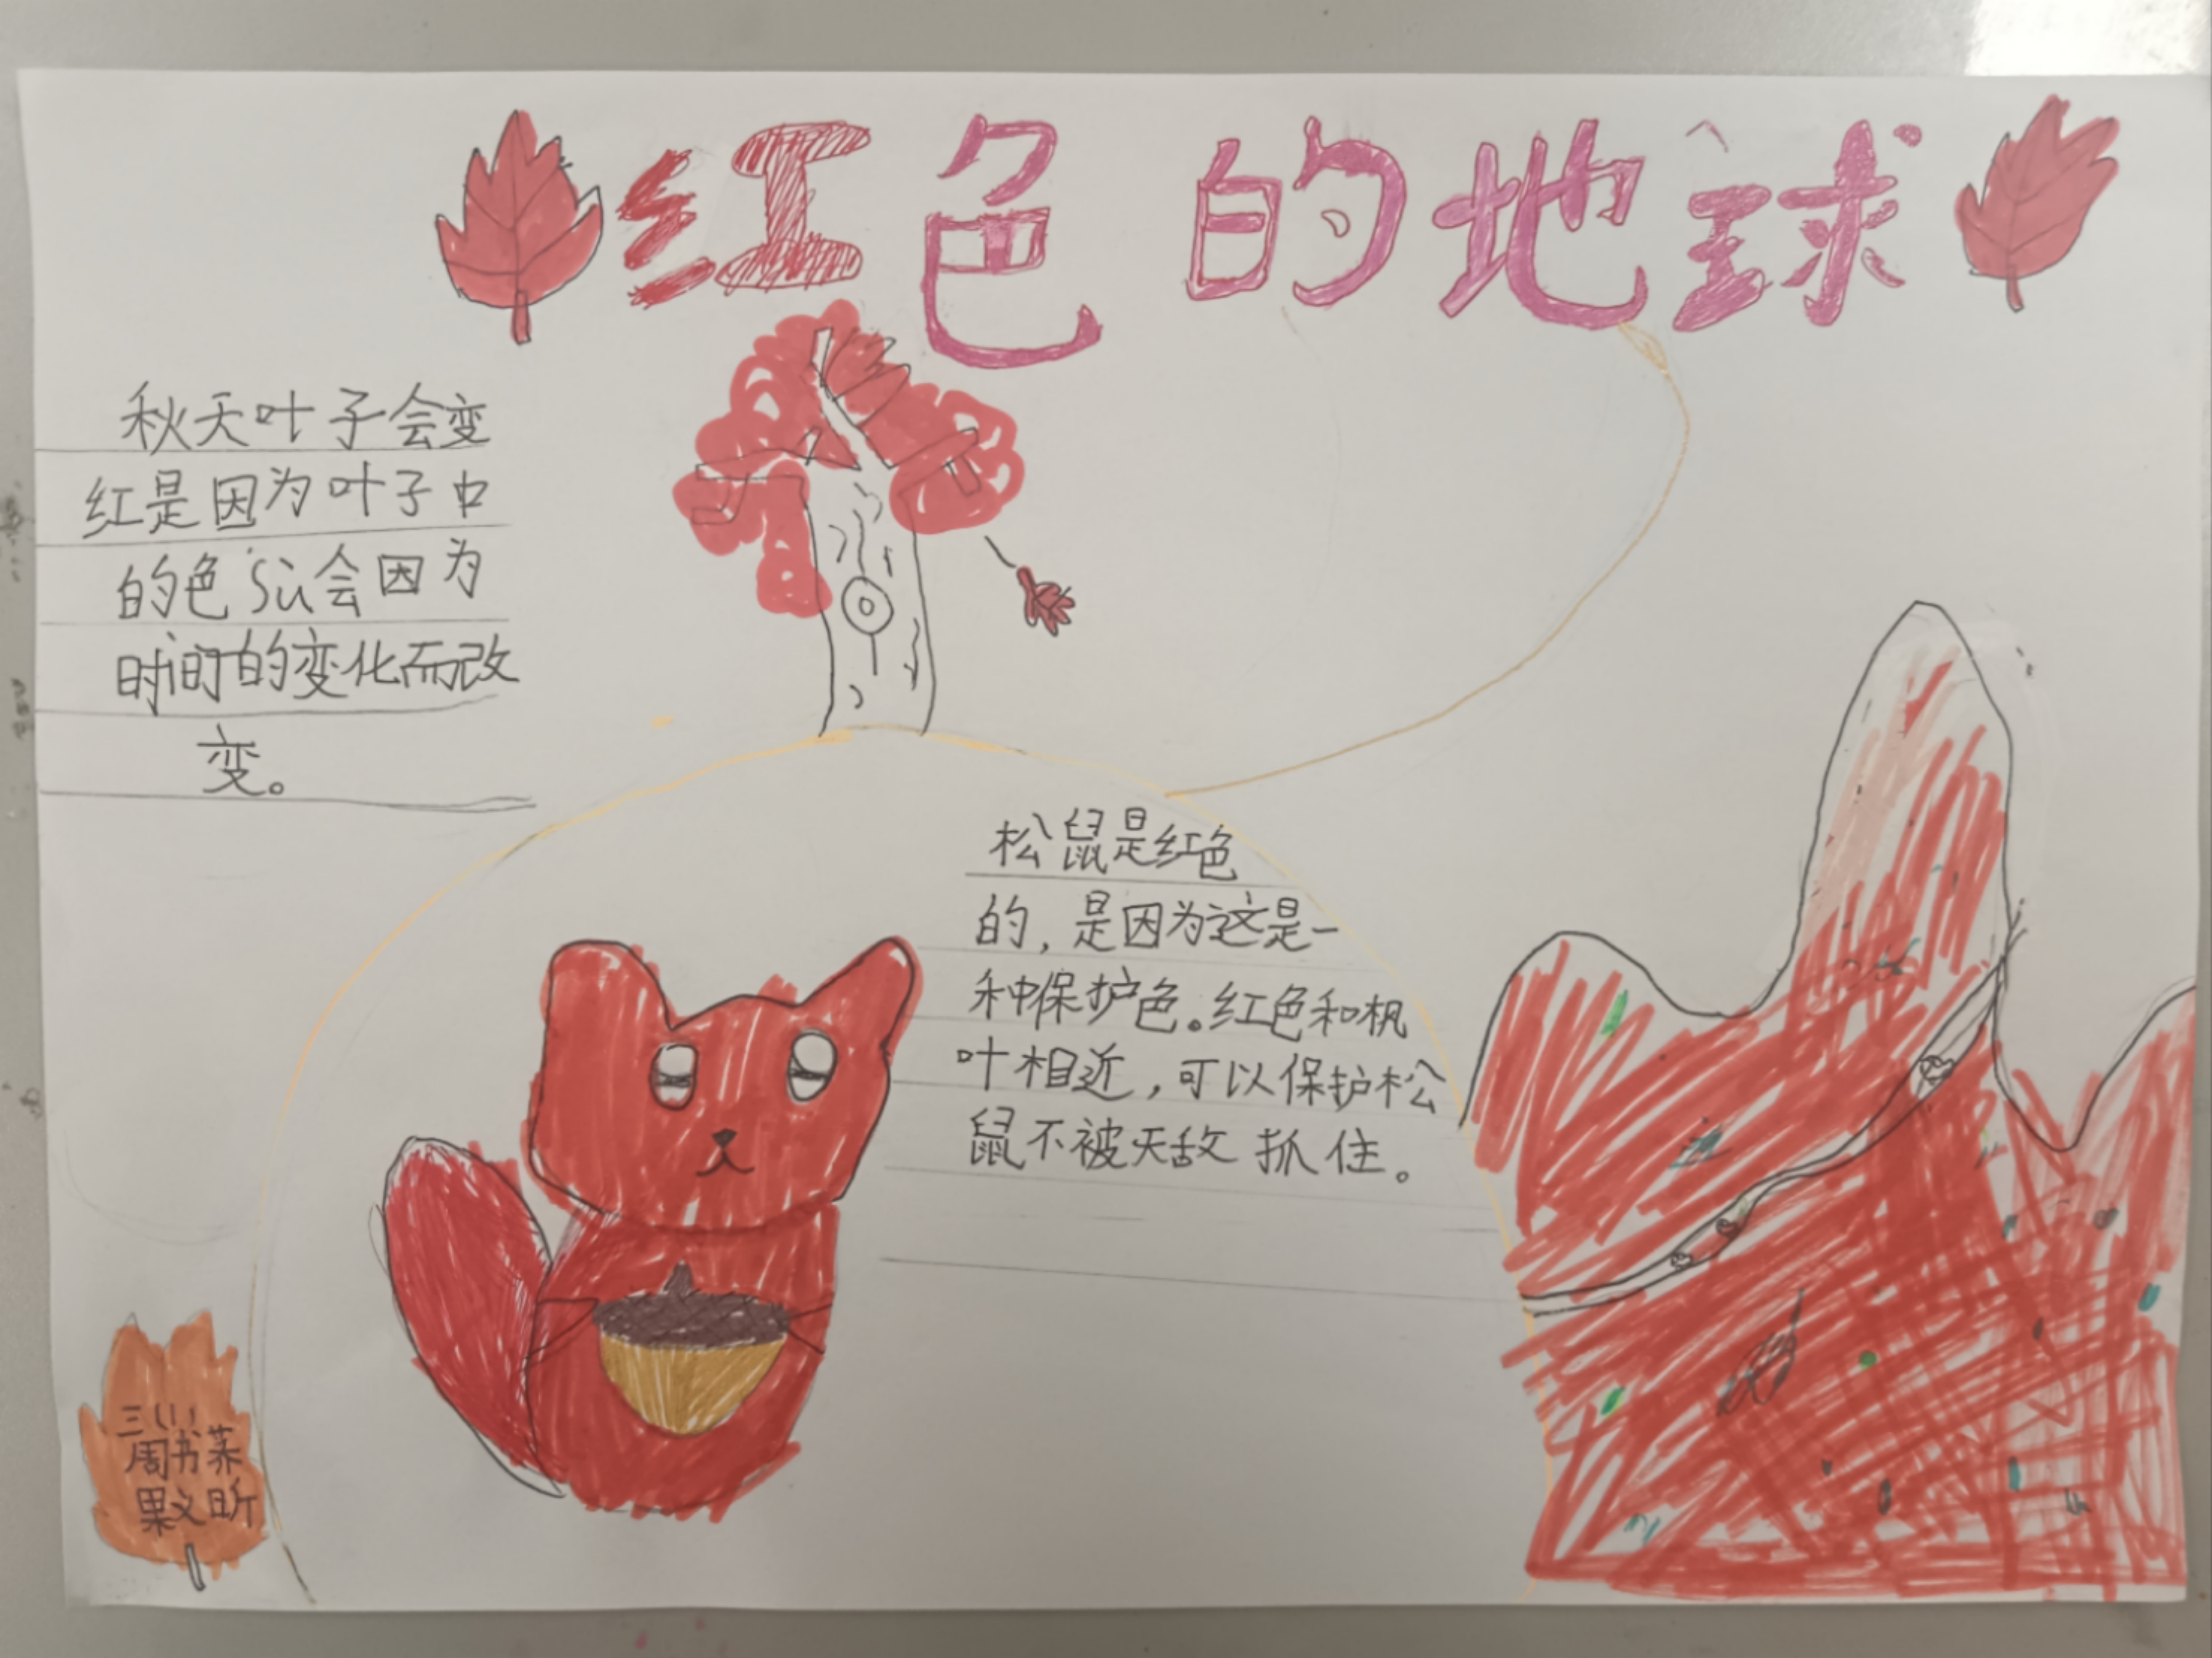 红色的地球
秋天叶子会变
红是因为叶子中
的色sù会因为
时间的变化而改
变。
松鼠是红色
的，是因为这是一
种保护色。红色和枫
叶相近，可以保护松
鼠不被天敌抓住。
三(1)
周书荞
果文昕